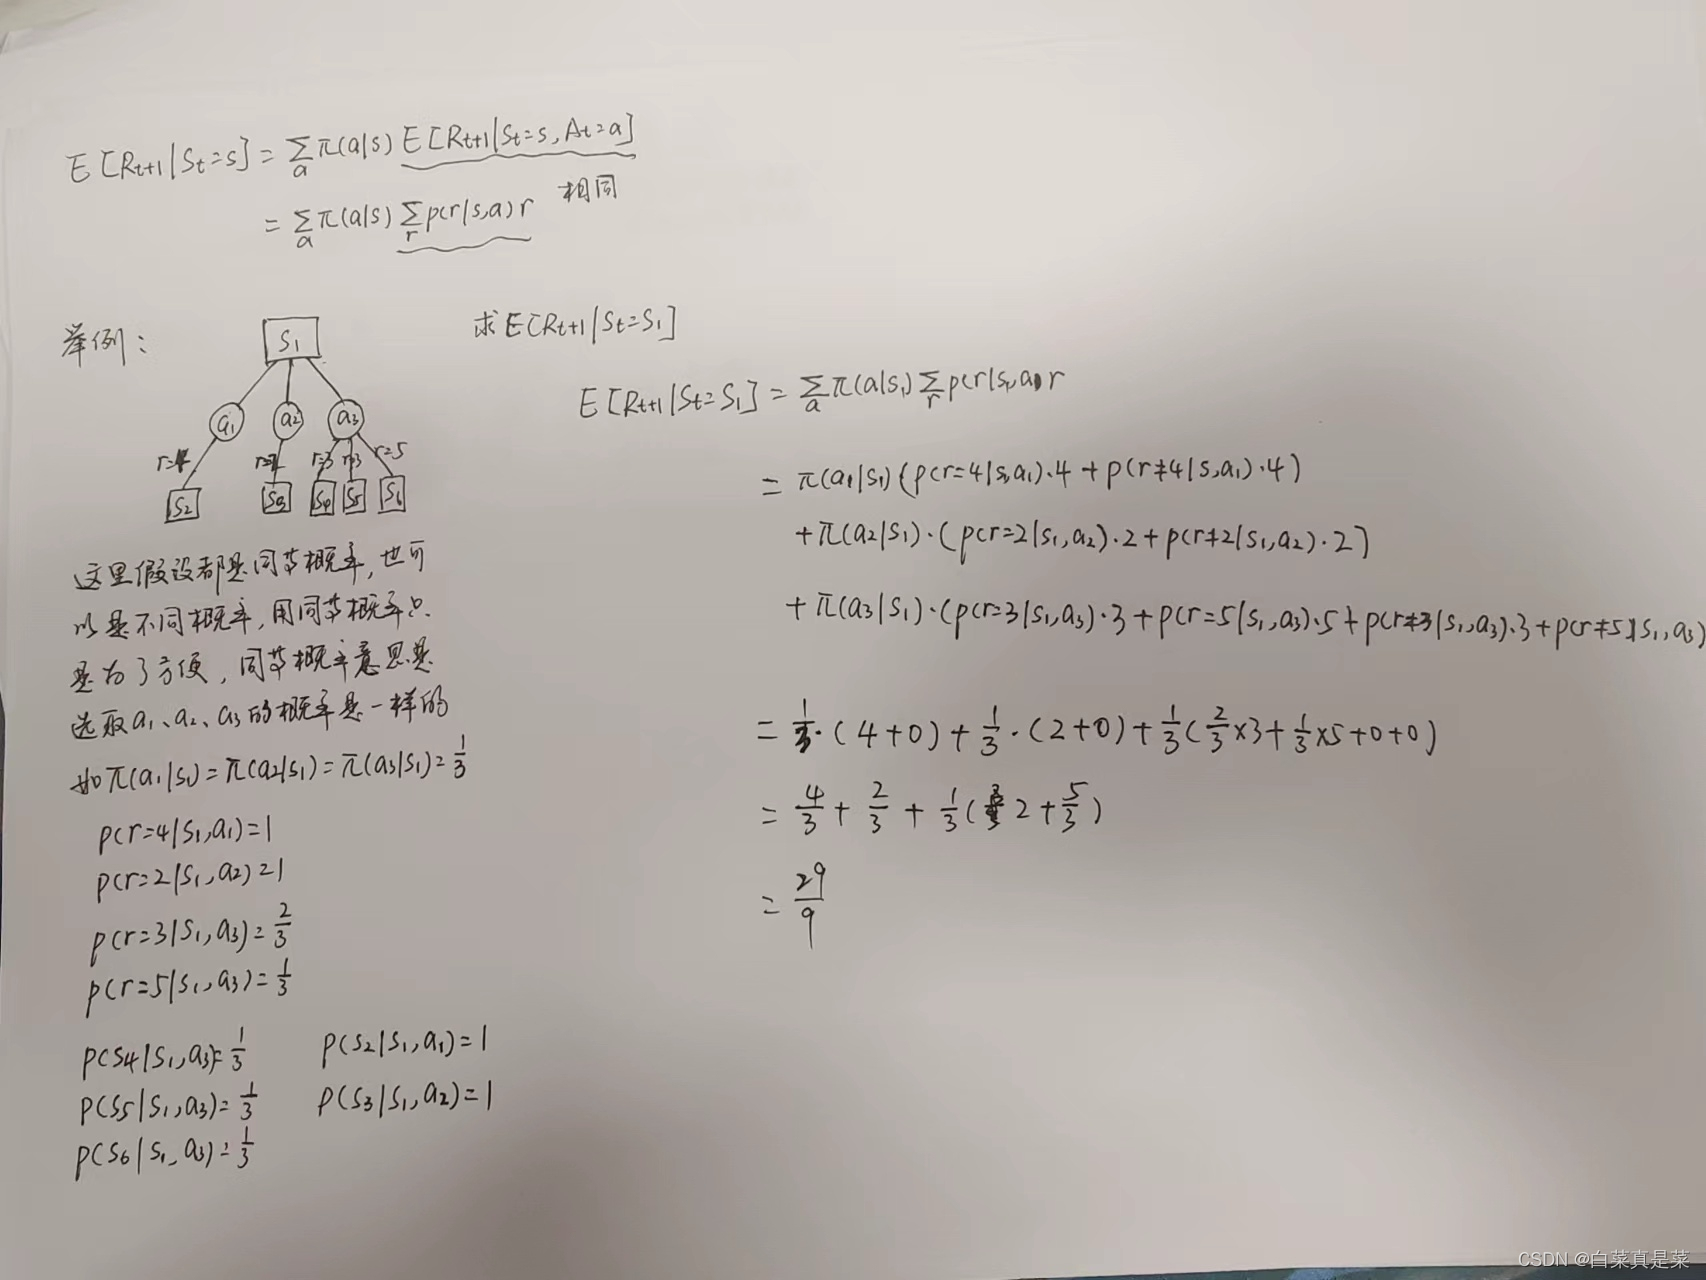 E[Rt+1|St=s] = ∑a π(a|s) E[Rt+1|St=s, At=a]
= ∑a π(a|s) ∑r p(r|s,a) r 相同
举例：
S1
a1 a2 a3
r=4 r=2 r=3 r=3 r=5
S2 S3 S4 S5 S6
这里假设都是同等概率，也可
以是不同概率，用同等概率只
是为了方便，同等概率意思是
选取a1、a2、a3的概率是一样的
如π(a1|s1)=π(a2|s1)=π(a3|s1)=1/3
p(r=4|s1,a1)=1
p(r=2|s1,a2)=1
p(r=3|s1,a3)=2/3
p(r=5|s1,a3)=1/3
p(s4|s1,a3)=1/3 p(s2|s1,a1)=1
p(s5|s1,a3)=1/3 p(s3|s1,a2)=1
p(s6|s1,a3)=1/3
求 E[Rt+1|St=S1]
E[Rt+1|St=S1] = ∑a π(a|s1) ∑r p(r|s1,a) r
= π(a1|s1)(p(r=4|s,a1)·4 + p(r≠4|s,a1)·4)
+π(a2|s1)·(p(r=2|s1,a2)·2+p(r≠2|s1,a2)·2)
+π(a3|s1)·(p(r=3|s1,a3)·3+p(r=5|s1,a3)·5+p(r≠3|s1,a3)·3+p(r≠5|s1,a3)
= 1/3·(4+0)+1/3·(2+0)+1/3(2/3×3+1/3×5+0+0)
= 4/3+2/3+1/3(2+5/3)
= 29/9
CSDN @白菜真是菜